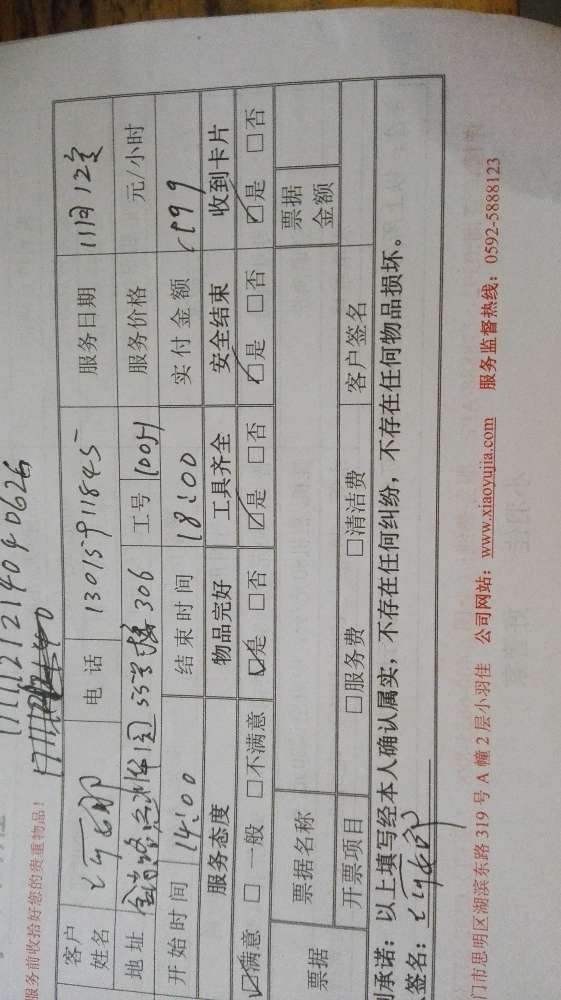 171112121404 0626
服务前收拾好您的贵重物品！
客户姓名 电话 13015911845 服务日期 11月12号
地址 306 工号 服务价格 元/小时
开始时间 14:00 结束时间 18:00 实付金额 199
服务态度 物品完好 工具齐全 安全结束 收到卡片
☑满意 □一般 □不满意 ☑是 □否 ☑是 □否 ☑是 □否 ☑是 □否
票据 票据名称 票据金额
开票项目 □服务费 □清洁费 客户签名
承诺：以上填写经本人确认属实，不存在任何纠纷，不存在任何物品损坏。
签名：
门市思明区湖滨东路 319 号 A 幢 2 层小羽佳 公司网站：www.xiaoyujia.com 服务监督热线：0592-5888123